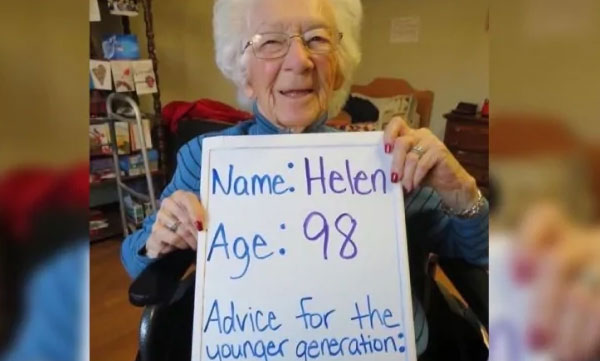 Name: Helen
Age: 98
Advice for the
younger generation: